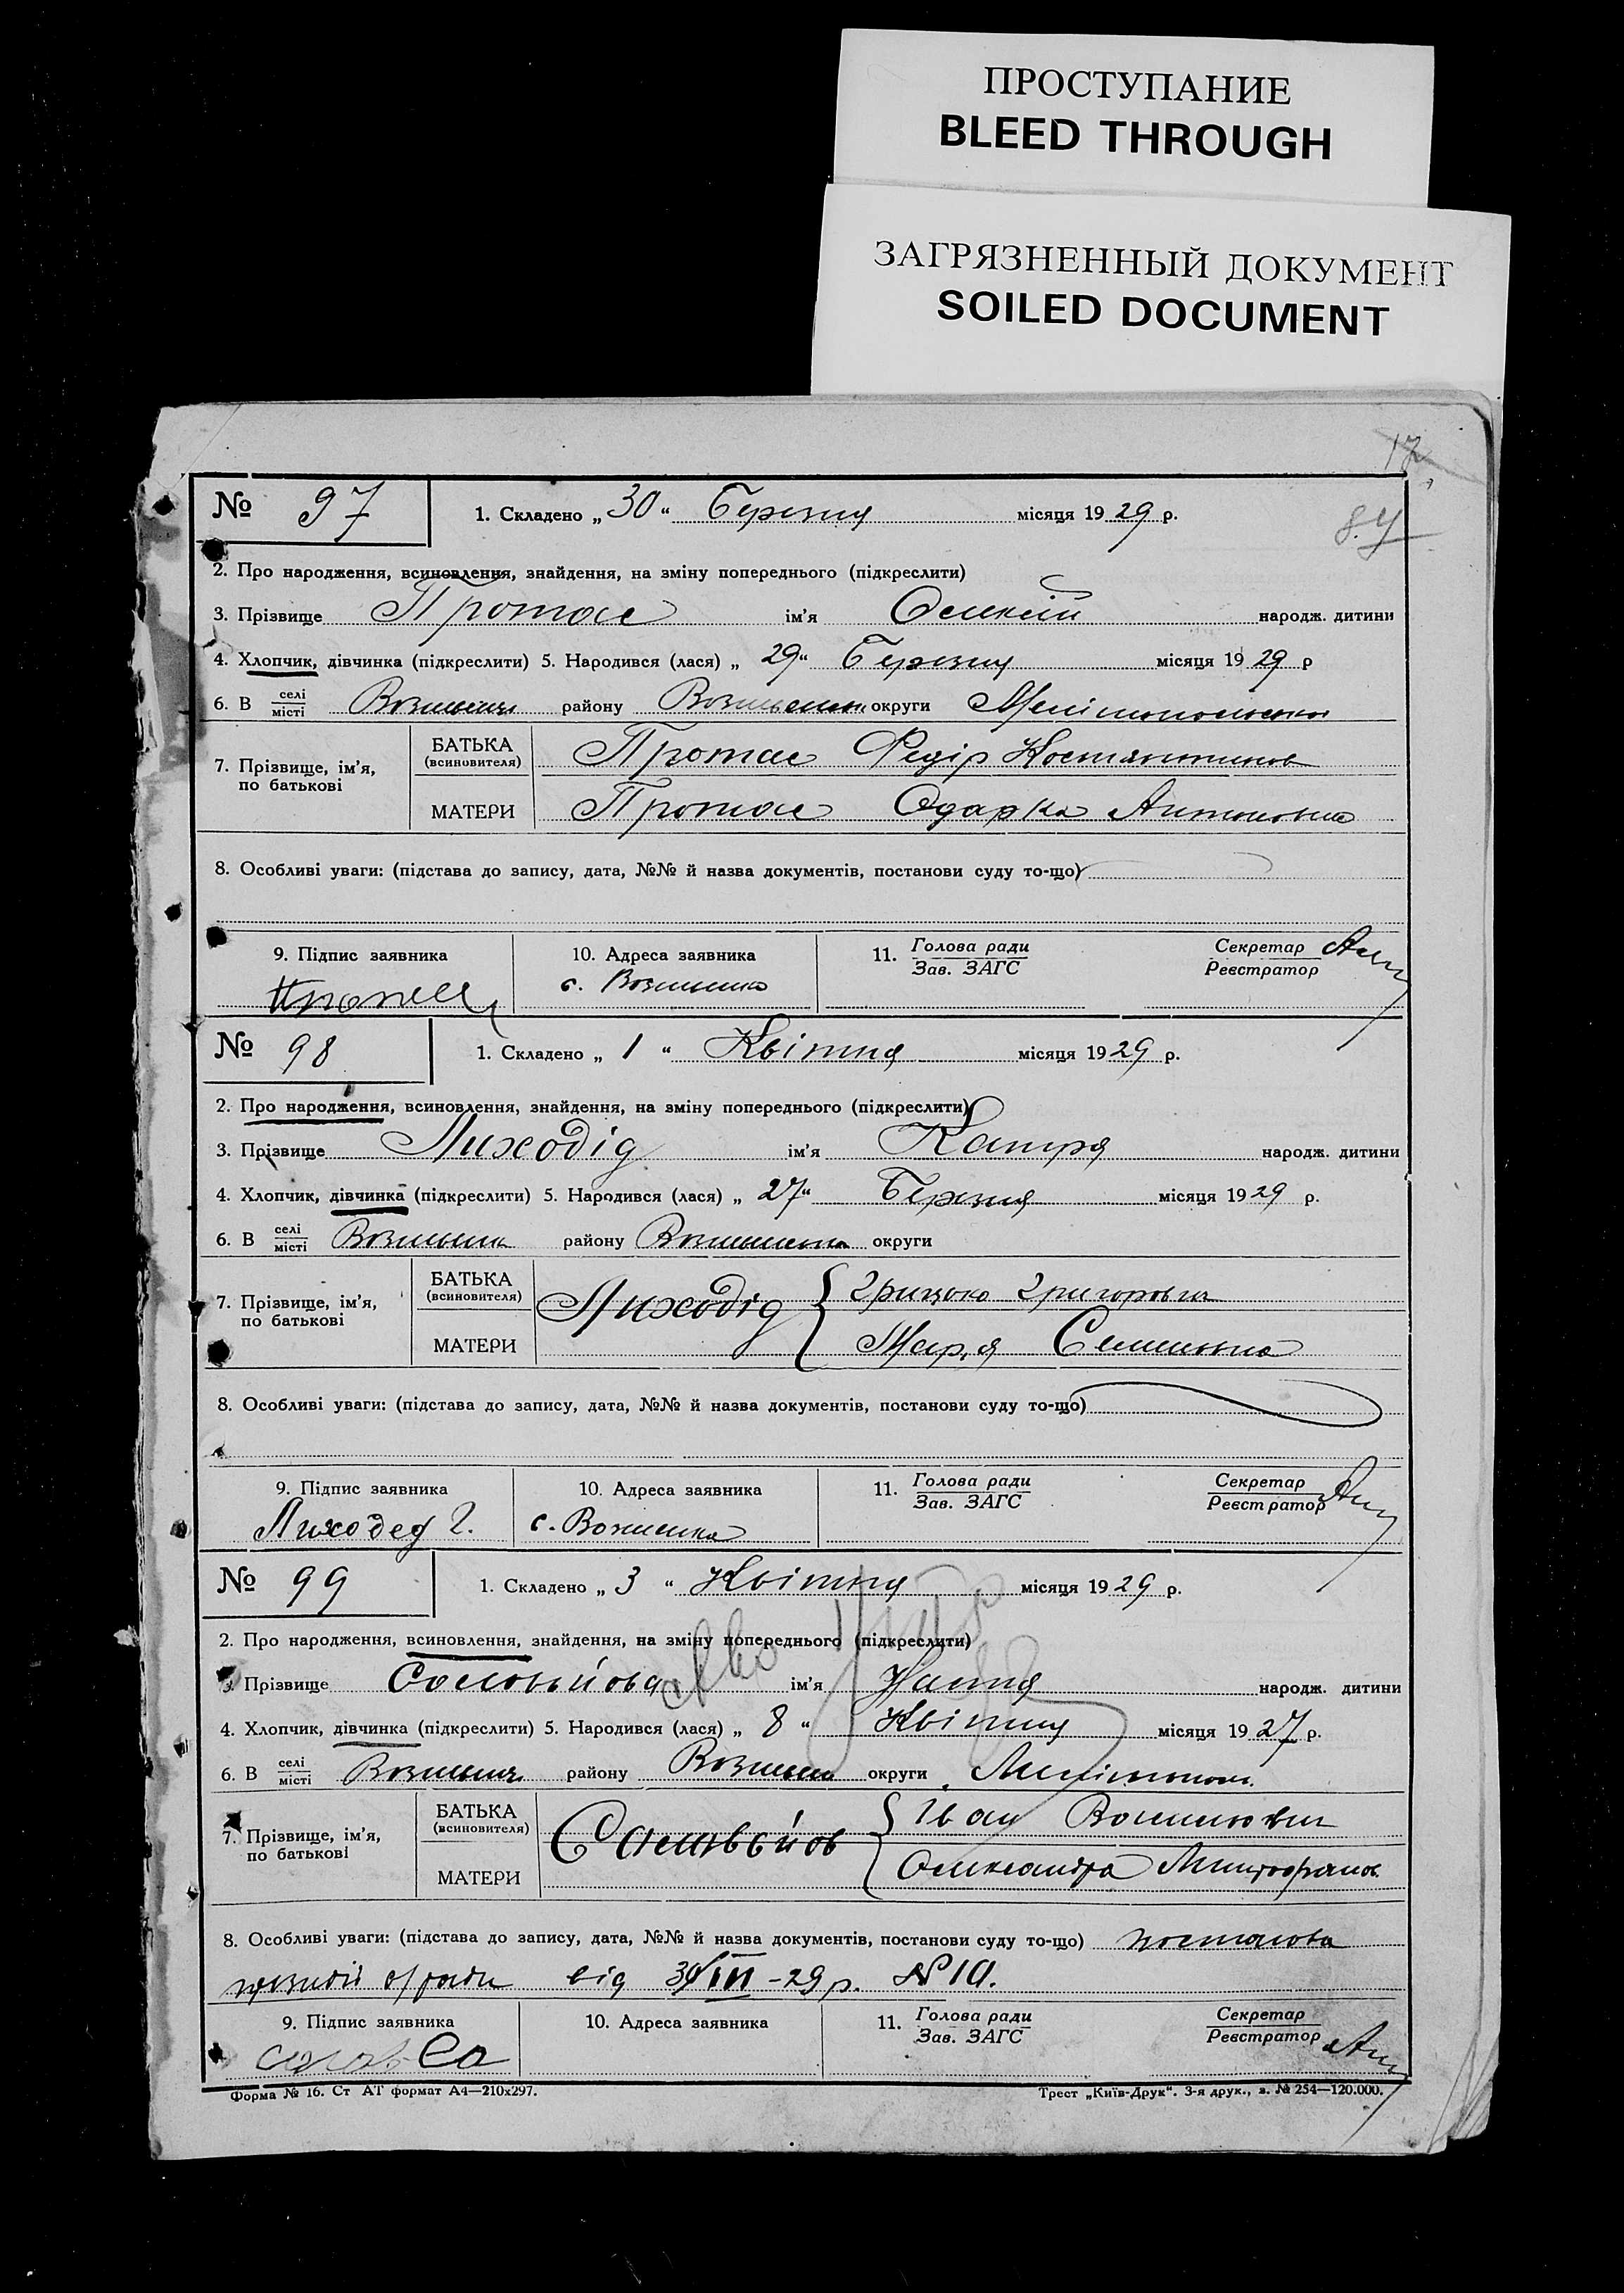 ПРОСТУПАНИЕ
BLEED THROUGH
ЗАГРЯЗНЕННЫЙ ДОКУМЕНТ
SOILED DOCUMENT
17
№ 97 1. Складено „ 30 “ Березня місяця 19 29 р.
2. Про народження, всиновлення, знайдення, на зміну попереднього (підкреслити)
3. Прізвище Протас ім'я Олексій народж. дитини
4. Хлопчик, дівчинка (підкреслити) 5. Народився (лася) „ 29 “ Березня місяця 19 29 р
6. В селі місті району округи
7. Прізвище, ім'я, по батькові БАТЬКА (всиновителя) Протас Федір Костянтинов
МАТЕРИ Протас Одарка Антоновна
8. Особливі уваги: (підстава до запису, дата, №№ й назва документів, постанови суду то-що)
9. Підпис заявника 10. Адреса заявника 11. Голова ради Зав. ЗАГС Секретар Реєстратор
с.
№ 98 1. Складено „ 1 “ Квітня місяця 19 29 р.
2. Про народження, всиновлення, знайдення, на зміну попереднього (підкреслити)
3. Прізвище Лиходід ім'я Катря народж. дитини
4. Хлопчик, дівчинка (підкреслити) 5. Народився (лася) „ 27 “ Березня місяця 19 29 р.
6. В селі місті району округи
7. Прізвище, ім'я, по батькові БАТЬКА (всиновителя) Лиходід Грицько Григорович
МАТЕРИ Марія Семеновна
8. Особливі уваги: (підстава до запису, дата, №№ й назва документів, постанови суду то-що)
9. Підпис заявника 10. Адреса заявника 11. Голова ради Зав. ЗАГС Секретар Реєстратор
Лиходед Г. с.
№ 99 1. Складено „ 3 “ Квітня місяця 19 29 р.
2. Про народження, всиновлення, знайдення, на зміну попереднього (підкреслити)
3. Прізвище Соловьйова ім'я народж. дитини
4. Хлопчик, дівчинка (підкреслити) 5. Народився (лася) „ 8 “ Квітня місяця 19 27 р.
6. В селі місті району округи
7. Прізвище, ім'я, по батькові БАТЬКА (всиновителя) Соловьйов Іван
МАТЕРИ Олександра Митрофанов.
8. Особливі уваги: (підстава до запису, дата, №№ й назва документів, постанови суду то-що) постанова
від III-29 р. № 10.
9. Підпис заявника 10. Адреса заявника 11. Голова ради Зав. ЗАГС Секретар Реєстратор
Форма № 16. Ст АТ формат А4—210х297. Трест „Київ-Друк“. 3-я друк., з. № 254—120.000.